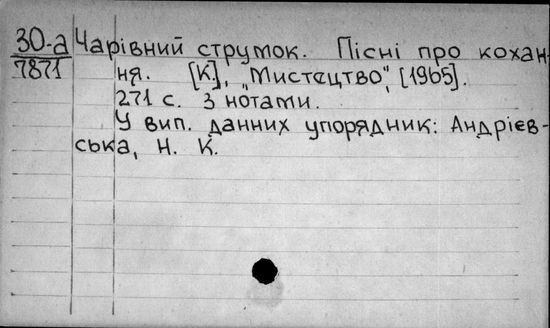 30-а Чарівний струмок. Пісні про кохан-
7871 ня. [К], "Мистецтво", [1965].
271 с. З нотами.
У вип. данних упорядник: Андрієв-
ська, Н. К.